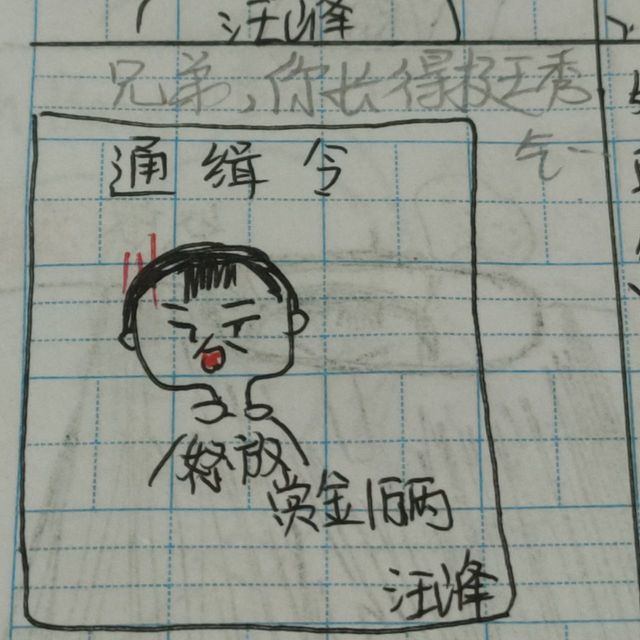 汪峰
兄弟,你长得挺秀
气
通缉令
怒放
赏金1百两
汪峰